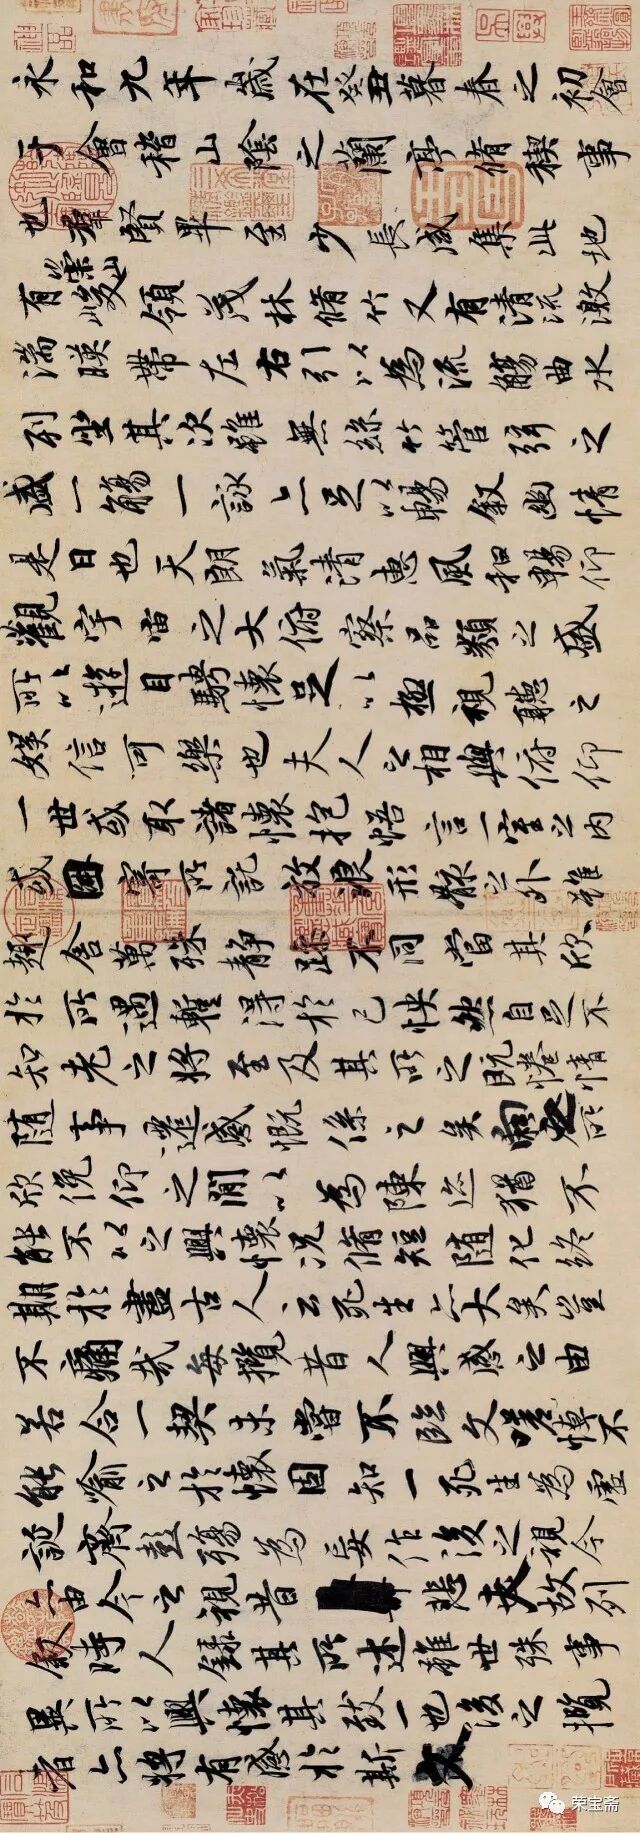 永和九年歲在癸丑暮春之初會
于會稽山陰之蘭亭脩稧事
也羣賢畢至少長咸集此地
有崇山峻領茂林脩竹又有清流激
湍暎帶左右引以為流觴曲水
列坐其次雖無絲竹管弦之
盛一觴一詠亦足以暢敘幽情
是日也天朗氣清惠風和暢仰
觀宇宙之大俯察品類之盛
所以遊目騁懷足以極視聽之
娛信可樂也夫人之相與俯仰
一世或取諸懷抱悟言一室之內
或因寄所託放浪形骸之外雖
趣舍萬殊靜躁不同當其欣
於所遇暫得於己怏然自足不
知老之將至及其所之既惓情
隨事遷感慨係之矣向之所
欣俛仰之閒以為陳迹猶不
能不以之興懷況脩短隨化終
期於盡古人云死生亦大矣豈
不痛哉每攬昔人興感之由
若合一契未嘗不臨文嗟悼不
能喻之於懷固知一死生為虛
誕齊彭殤為妄作後之視今
亦由今之視昔悲夫故列
敘時人錄其所述雖世殊事
異所以興懷其致一也後之攬
者亦將有感於斯文
荣宝斋